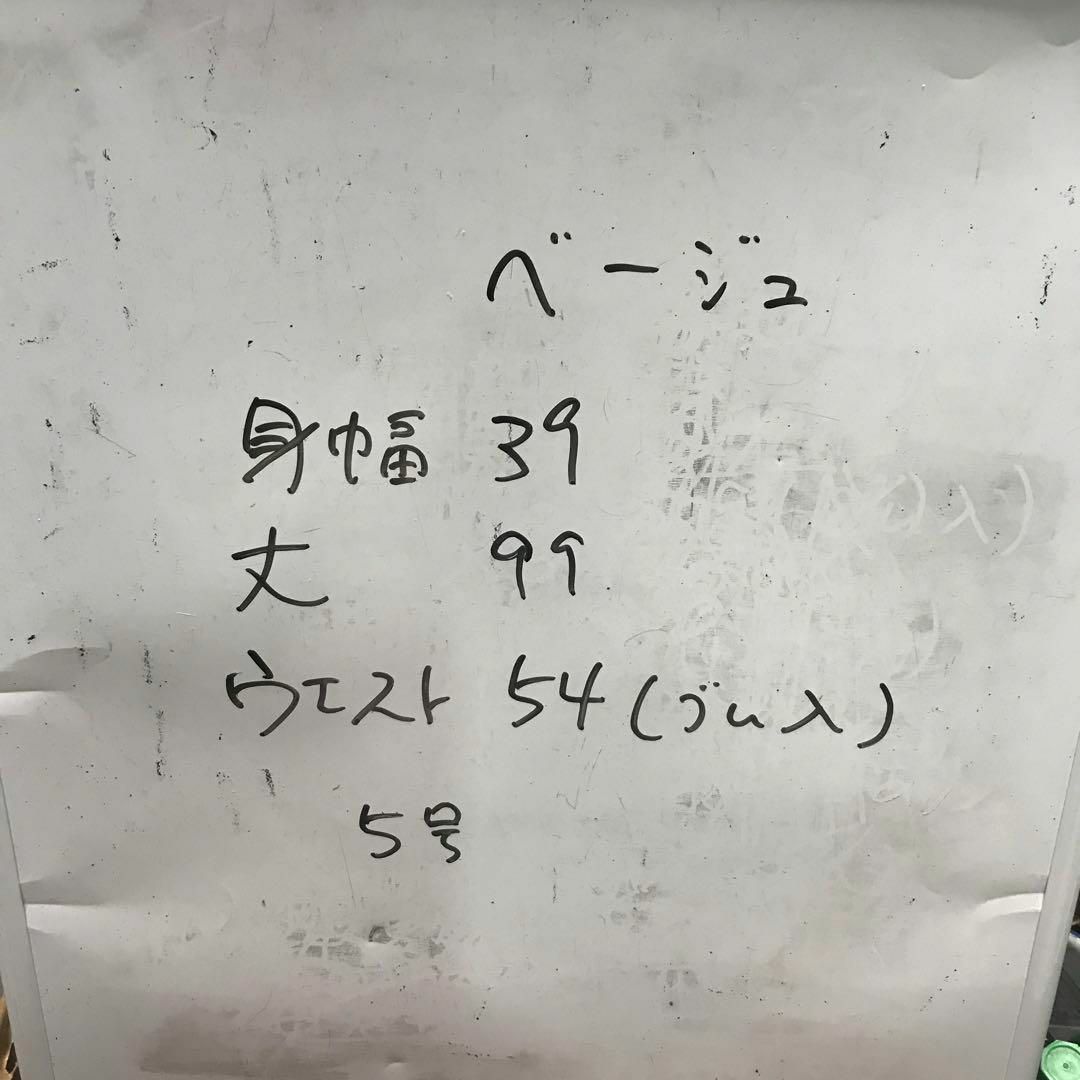 ベージュ
身幅 39
丈 99
ウエスト 54 (ゴム入)
5号